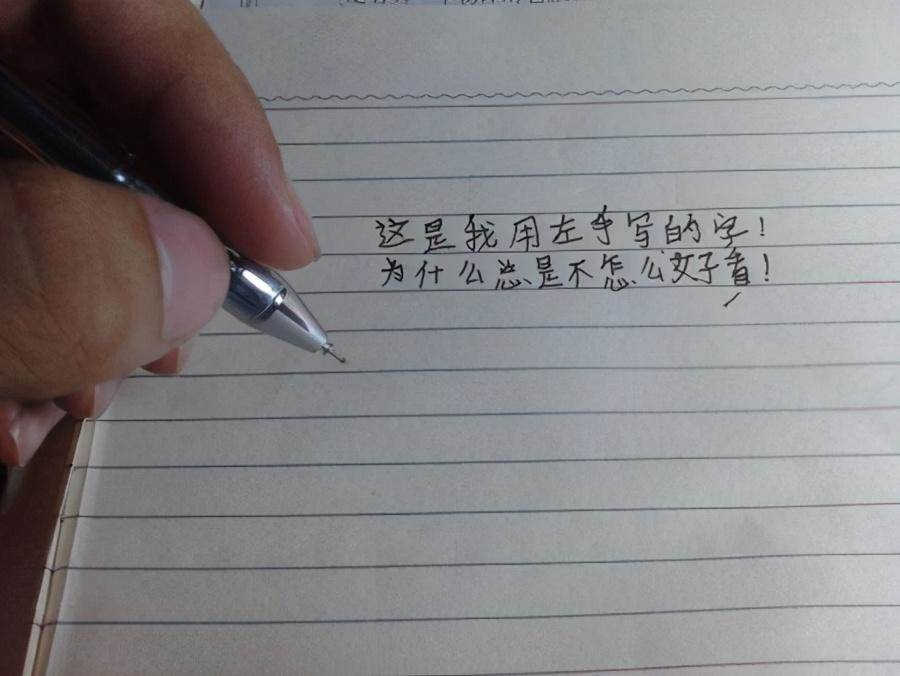 这是我用左手写的字！
为什么总是不怎么好看！